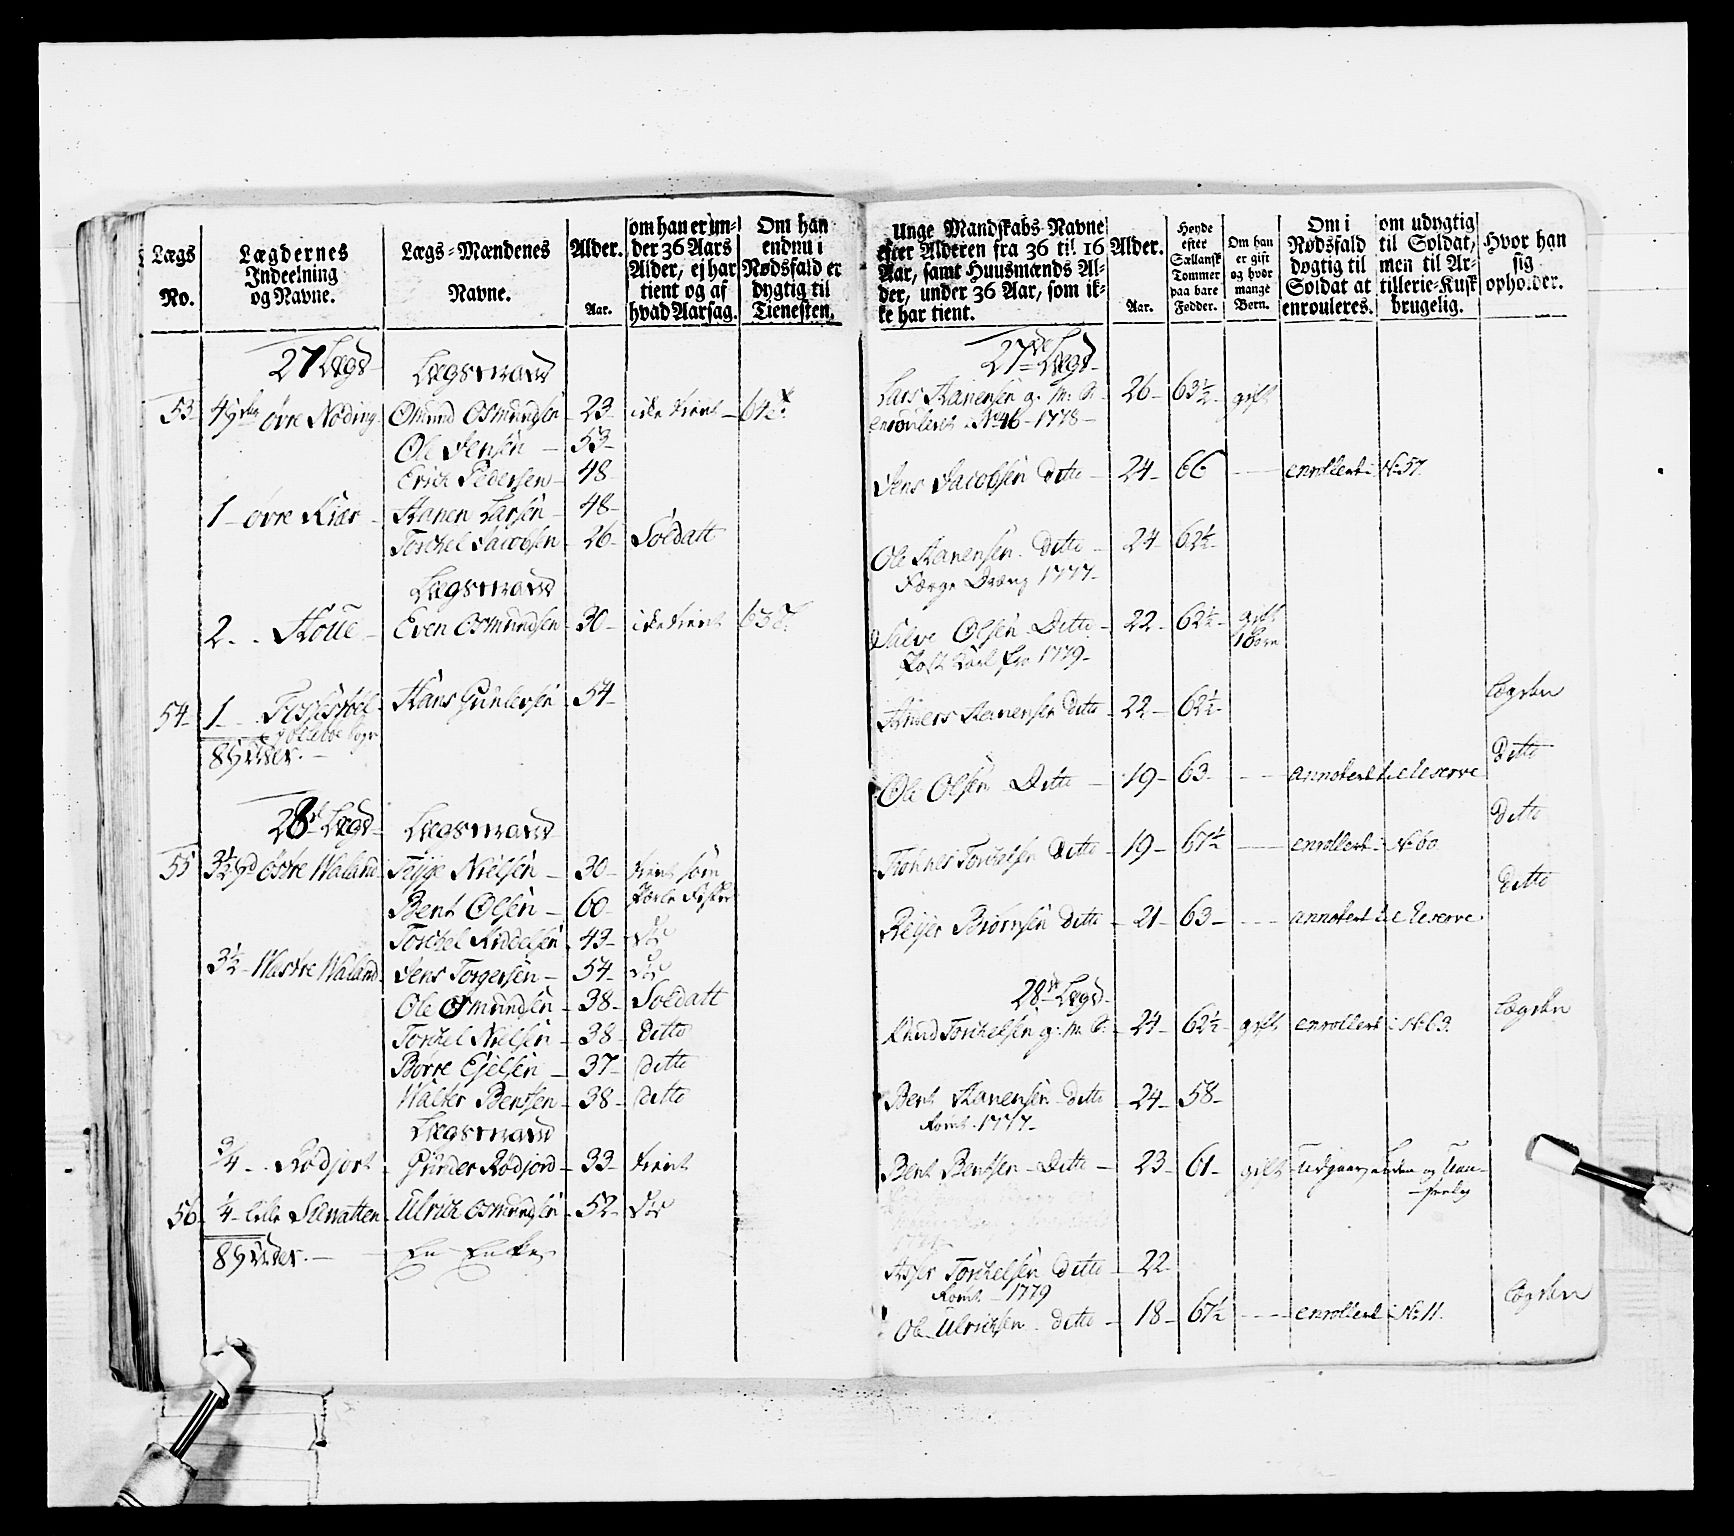 Lægs No.
Lægdernes Indeelning og Navne.
Lægs-Mændenes Navne.
Alder. Aar.
om han er un-
der 36 Aars
Alder, ej har
tient og af
hvad Aarsag.
Om han
endnu i
Nødsfald er
dygtig til
Tienesten.
27 Lægd Lægsmand
53 Øvre Nøding Omund Osmundsen 23 icke tient 64
Ole Jensen 53
Erich Pedersen 48
1 Øvre Kiær Hanen Larsen 48
Torchel Jacobsen 26 Soldatt
Lægsmand
2 Even Osmundsen 30 icke tient 63
54 1 Hans Gunlersen 54
8
28 Lægd Lægsmand
55 3½ Østre Waland Tyge Nielsen 30 tient som
Bent Olsen 60
Torchel 49
3½ Westre Waland Jens Torgersen 54
Ole Osmundsen 38 Soldatt
Torchel Nielsen 38 Ditto
Børre Ejelsen 37 Ditto
Walter Bentsen 38 Ditto
Lægsmand
3/4 Rødjort Gunder Rødjord 33 tient
56 1/4 Lille Ulrich Osmundsen 52
8 En Encke
Unge Mandskabs Navne
efter Alderen fra 36 til 16
Aar, samt Huusmænds Al-
der, under 36 Aar, som ik-
ke har tient.
Alder. Aar.
Høyde
efter
Sællansk
Tommer
paa bare
Fødder.
Om han
er gift
og hvor
mange
Børn.
Om i
Nødsfald
dygtig til
Soldat at
enrouleres.
om udygtig
til Soldat,
men til Ar-
tillerie-Kusk
brugelig.
Hvor han
sig
opholder.
27de Lægd
Lars Hanensen g. m. S. 26 63½ gift
enrouleret No 46 1778
Jens Jacobsen Ditto 24 66 enrollert No 57
Ole Hanensen Ditto 24 62½
1777
Salve Olsen Ditto 22 62½ gift
1 Børn
1779
Anders Hanensen Ditto 22 62½ Lægden
Ole Olsen Ditto 19 63 annotert til Reserve Ditto
Torchelsen Ditto 19 67½ enrollert No 60 Ditto
Reijer Biørnsen Ditto 21 63 annotert til Reserve Ditto
28de Lægd
Knud Torchelsen g. m. S. 24 62½ gift enrollert No 63 Lægden
Bent Hanensen Ditto 24 58
1777
Bent Bentsen Ditto 23 61 gift
Torchelsen Ditto 22
1779
Ole Ulrichsen Ditto 18 67½ enrollert No 11 Lægden